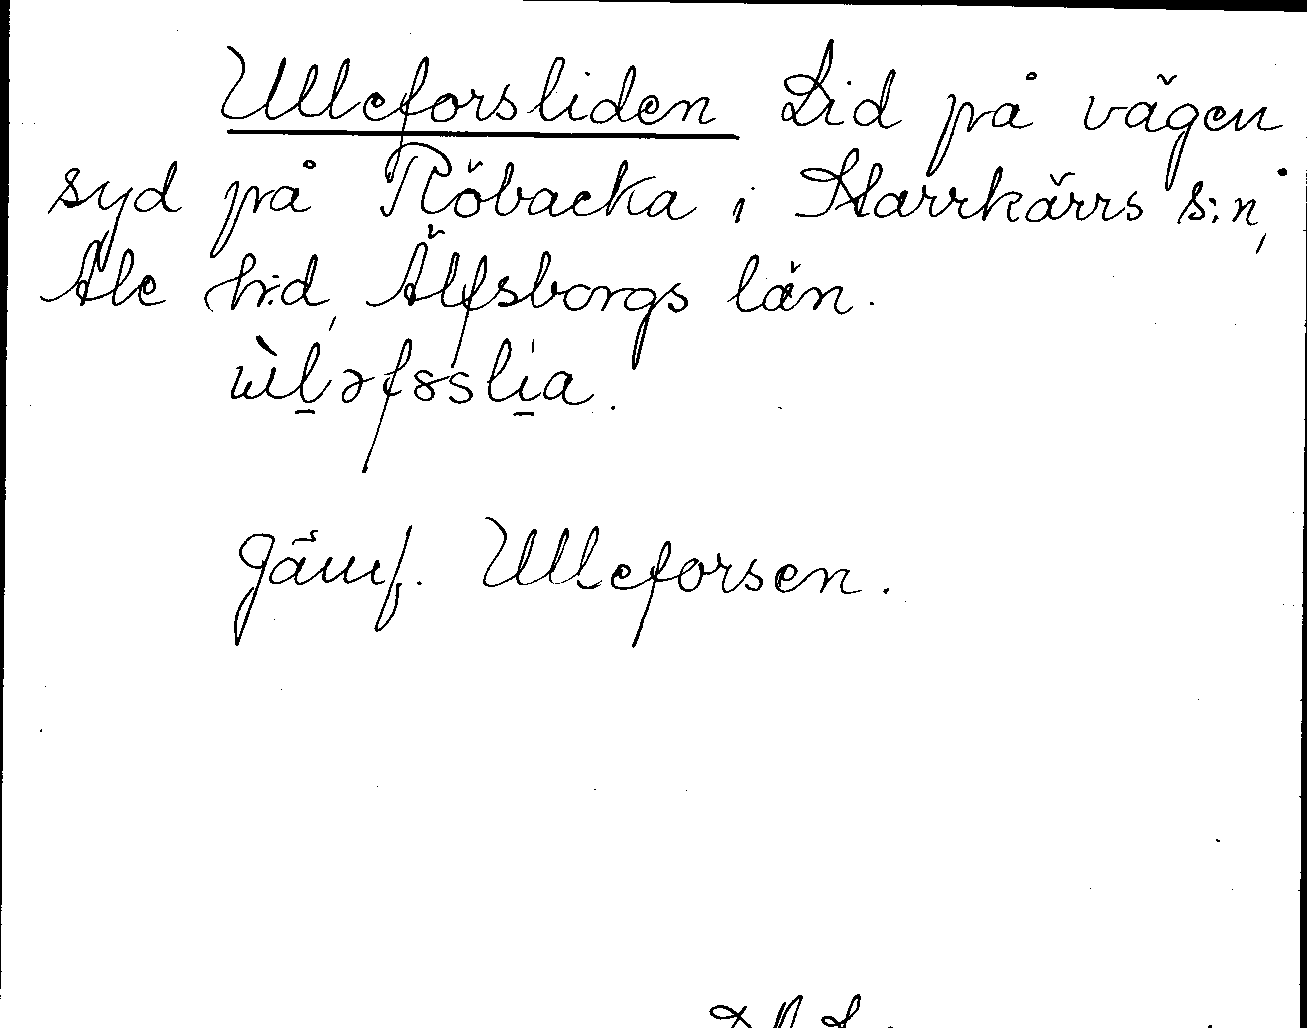 Ulleforsliden Lid på vägen
syd på Röbacka i Starrkärrs s:n,
Ale h:d, Älfsborgs län.
Jämf. Ulleforsen.